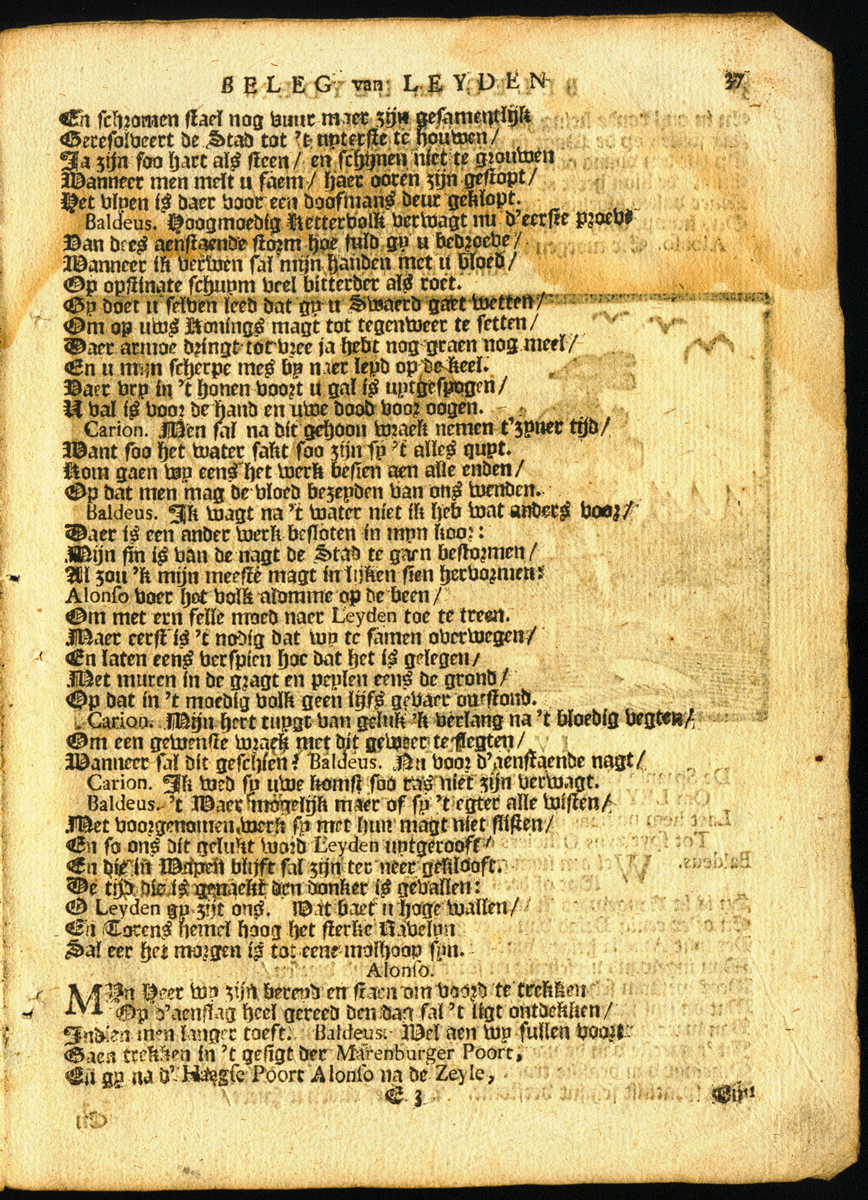 BELEG van LEYDEN 37
En schromen stael nog vuur maer zijn gesamentlijk
Geresolveert de Stad tot 't uyterste te houwen/
Ja zijn soo hart als steen/ en schijnen niet te grouwen
Wanneer men melt u faem/ haer ooren zijn gestopt/
Het vlyen is daer voor een doofmans deur geklopt.
Baldeus. Hoogmoedig Kettervolk verwagt nu d'eerste proeve
Van dees aenstaende storm hoe fuld gy u bedroeve/
Wanneer ik verwen sal mijn handen met u bloed/
Op opstinate schuym veel bitterder als roet.
Gy doet u selven leed dat gy u Swaerd gaet wetten/
Om op uws Konings magt tot tegenweer te setten/
Daer armoe dringt tot vree ja hebt nog graen nog meel/
En u mijn scherpe mes by naer leyd op de keel.
Daer vry in 't honen voort u gal is uytgespogen/
U val is voor de hand en uwe dood voor oogen.
Carion. Men sal na dit gehoon wraek nemen t'zyner tijd/
Want soo het water sakt soo zijn sy 't alles quyt.
Kom gaen wy eens het werk besien aen alle enden/
Op dat men mag de vloed bezeyden van ons wenden.
Baldeus. Ik wagt na 't water niet ik heb wat anders voor/
Daer is een ander werk besloten in myn koor:
Mijn sin is van de nagt de Stad te gaen bestormen/
Al zou 'k mijn meeste magt in lijken sien hervormen:
Alonso voer het volk alomme op de been/
Om met ern felle moed naer Leyden toe te treen.
Maer eerst is 't nodig dat wy te samen overwegen/
En laten eens verspien hoe dat het is gelegen/
Met muren in de gragt en peylen eens de grond/
Op dat in 't moedig volk geen lijfs gevaer ontstond.
Carion. Mijn hert tuygt van geluk 'k verlang na 't bloedig vegten/
Om een gewenste wraek met dit geweer te slegten/
Wanneer sal dit geschien? Baldeus. Nu voor d'aenstaende nagt/
Carion. Ik wed sy uwe komst soo ras niet zijn verwagt.
Baldeus. 't Waer mogelijk maer of sy 't egter alle wisten/
Met voorgenomen werk sy met hun magt niet slisten/
En so ons dit gelukt word Leyden uytgerooft/
En die in Wapen blijft sal zijn ter neer geklooft.
De tijd die is genaekt den donker is gevallen:
O Leyden gy zijt ons. Wat baet u hoge wallen/
En Torens hemel hoog het sterke Ravelyn
Sal eer het morgen is tot eene molhoop syn.
Alonso.
MYn Heer wy zijn bereyd en staen om voord te trekken
Op d'aenslag heel gereed den dag sal 't ligt ontdekken/
Indien men langer toeft. Baldeus. Wel aen wy sullen voort
Gaen trekken in 't gesigt der Marenburger Poort,
En gy na d' Haagse Poort Alonso na de Zeyle,
E 3